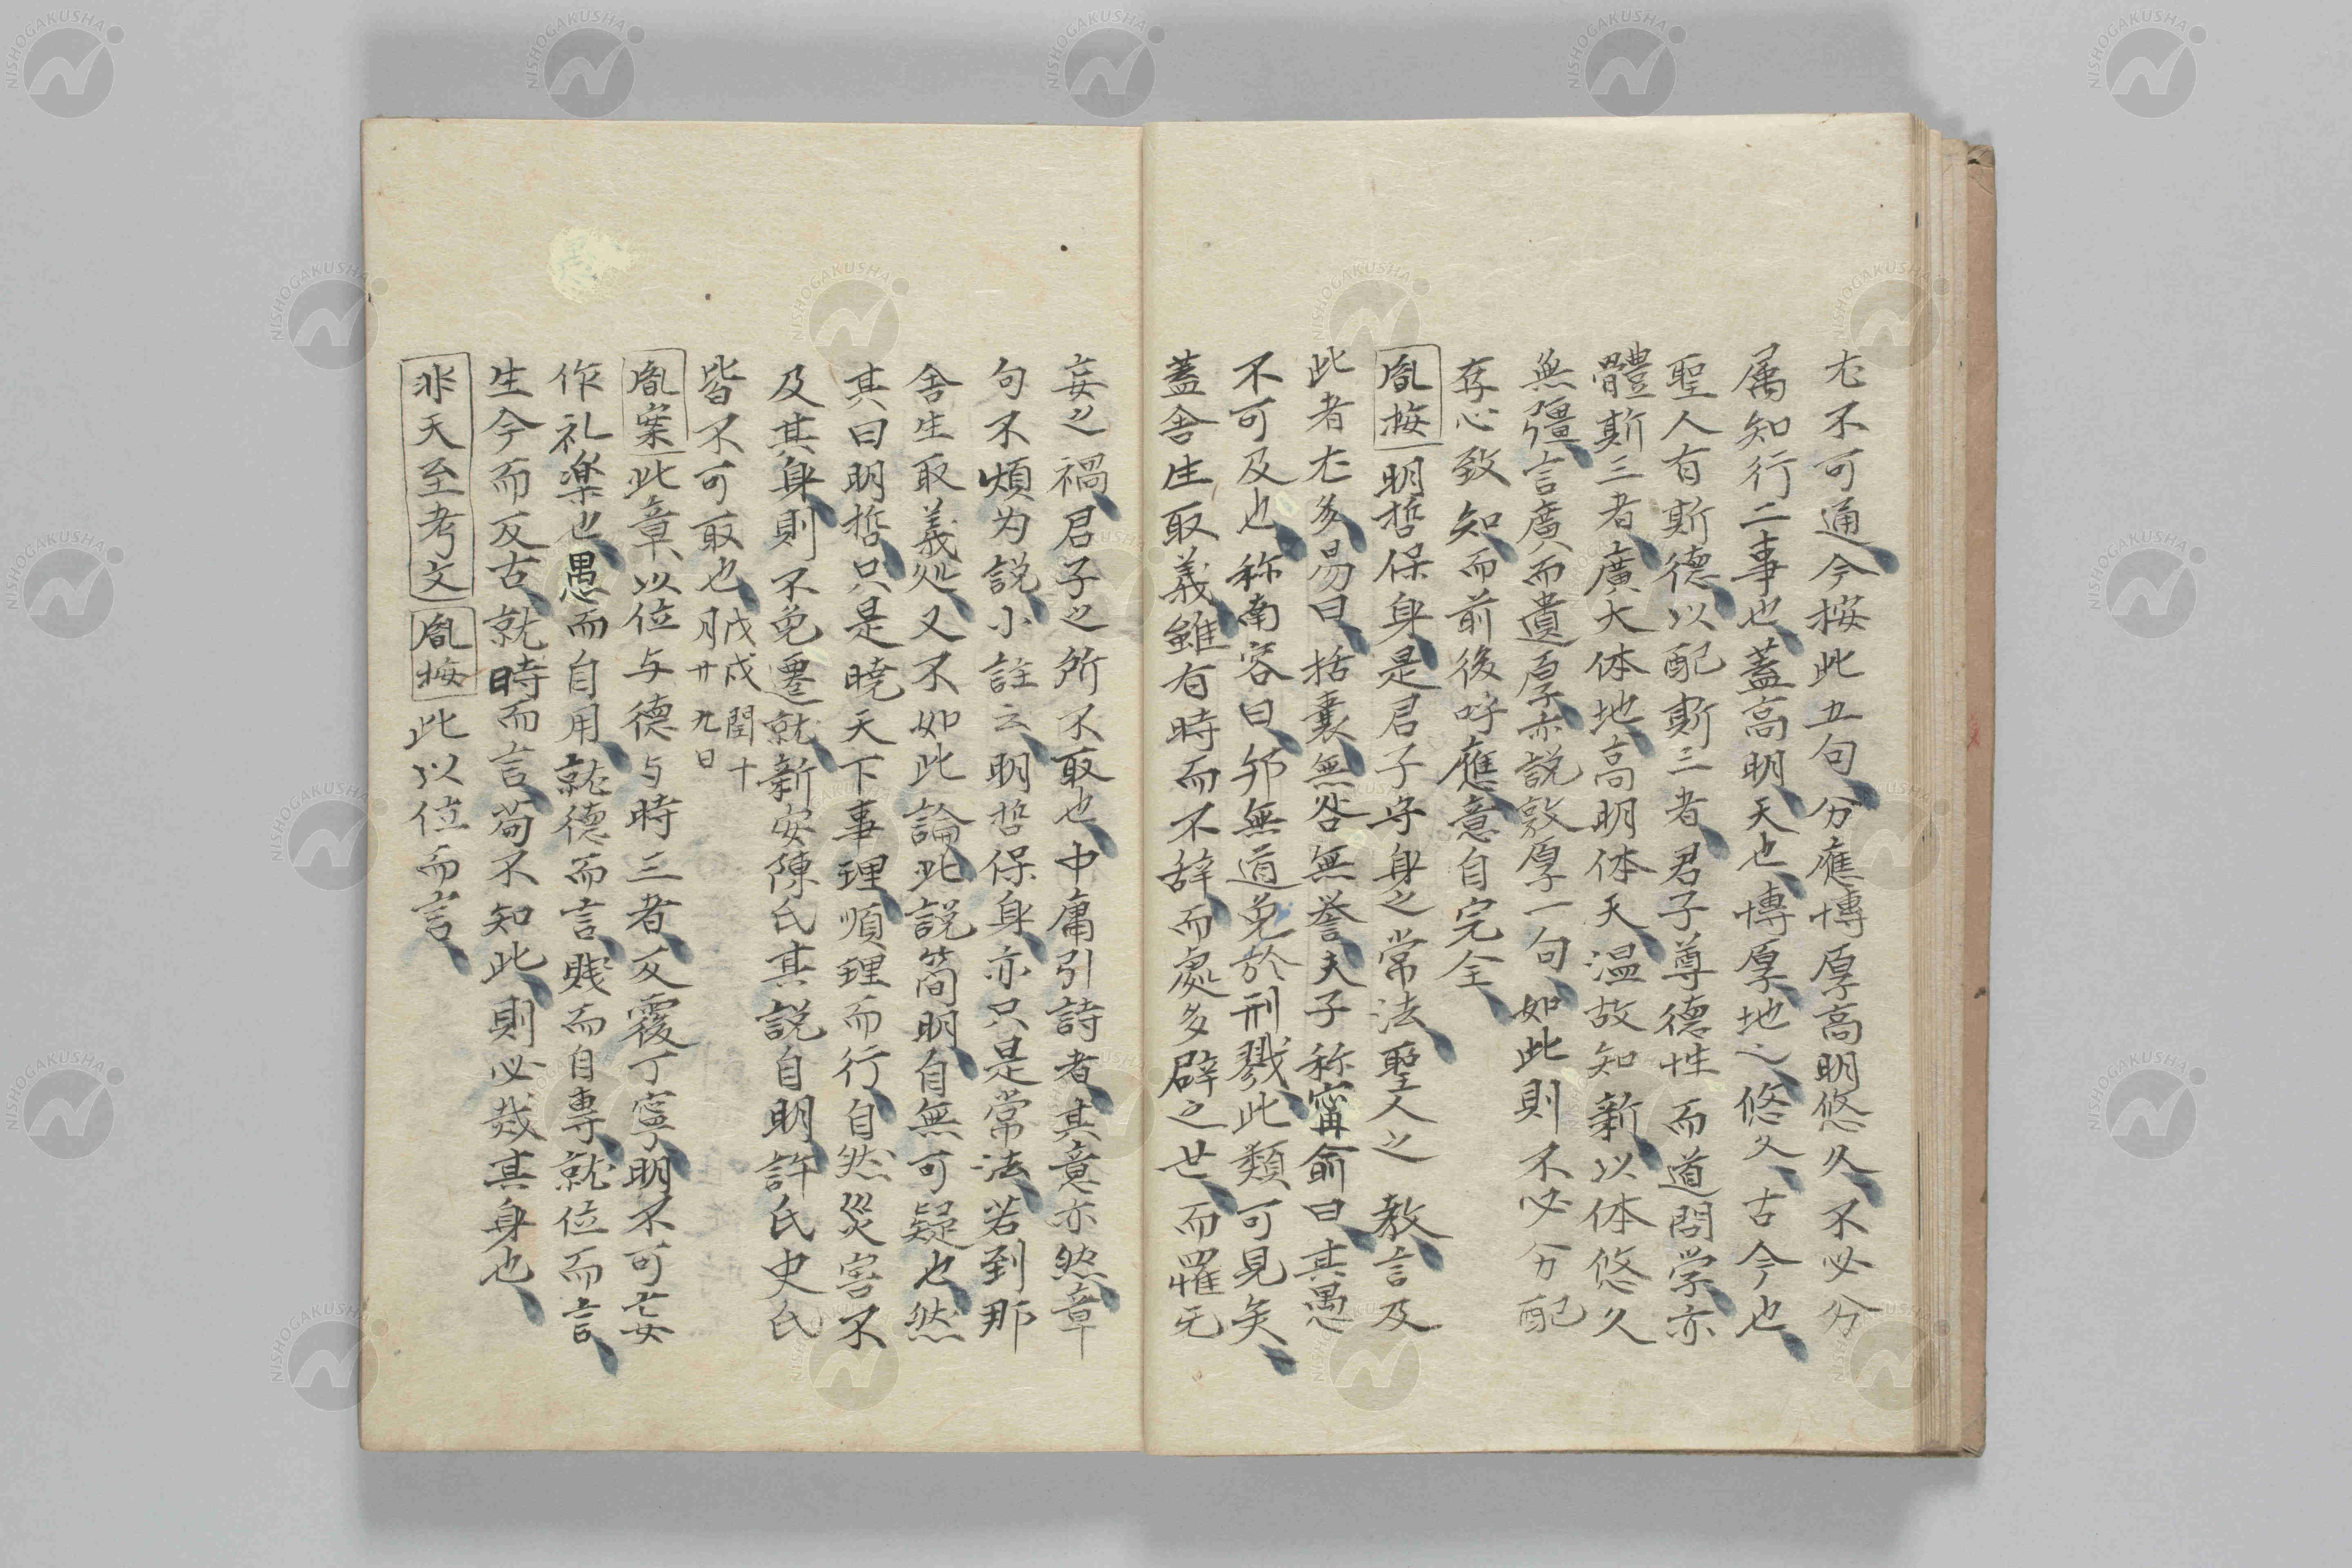 尤不可通今按此五句分應博厚高明悠久不必分
属知行二事也蓋高明天也博厚地也悠久古今也
聖人有斯德以配斯三者君子尊德性而道問学亦
體斯三者廣大体地高明体天温故知新以体悠久
無彊言廣而遺厚亦説敦厚一句如此則不必分配
存心致知而前後呼應意自完全
胤按明哲保身是君子守身之常法聖人之教言及
此者尤多易曰括囊無咎無誉夫子称甯俞曰其愚
不可及也称南容曰邦無道免於刑戮此類可見矣
蓋舎生取義雖有時而不辞而處多辟之世而罹无
妄之禍君子之所不取也中庸引詩者其意亦然章
句不煩为説小註云明哲保身亦只是常法若到那
舎生取義処又不如此論此説簡明自無可疑也然
其曰明哲只是暁天下事理順理而行自然災害不
及其身則不免遷就新安陳氏其説自明許氏史氏
皆不可取也戊戌閏十月廿九日
胤案此章以位与德与時三者反覆丁寧明不可妄
作礼楽也愚而自用就德而言賤而自専就位而言
生今而反古就時而言苟不知此則必烖其身也
非天至考文 胤按此以位而言
NISHOGAKUSHA